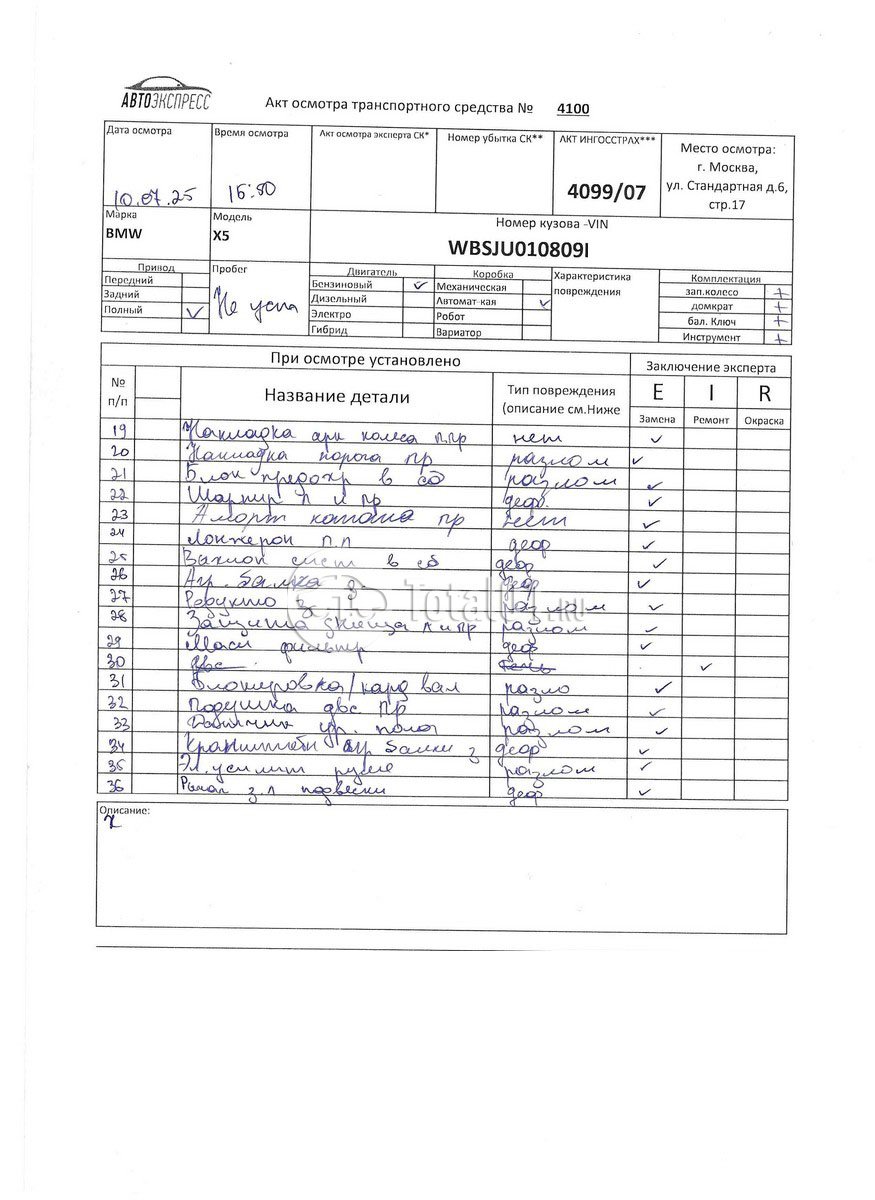 АВТОЭКСПРЕСС
Акт осмотра транспортного средства № 4100
Дата осмотра
10.07.25
Время осмотра
Акт осмотра эксперта СК*
Номер убытка СК**
АКТ ИНГОССТРАХ***
4099/07
Место осмотра:
г. Москва,
ул. Стандартная д.6,
стр.17
Марка
BMW
Модель
X5
Номер кузова -VIN
WBSJU010809I
Привод
Передний
Задний
Полный ✓
Пробег
Не уста
Двигатель
Бензиновый ✓
Дизельный
Электро
Гибрид
Коробка
Механическая
Автомат-кая ✓
Робот
Вариатор
Характеристика
повреждения
Комплектация
зап.колесо +
домкрат +
бал. Ключ +
Инструмент +
При осмотре установлено
Заключение эксперта
№
п/п
Название детали
Тип повреждения
(описание см.Ниже
E I R
Замена Ремонт Окраска
19 Накладка арк колеса п.пр нет ✓
20 Накладка порога пр разлом ✓
21 Блок предохр в сб разлом ✓
22 Шарнир л и пр деф. ✓
23 Аморт капота пр ✓
24 Лонжерон п.п деф ✓
25 Выхлоп сист в сб деф ✓
26 Агр. балка з. деф ✓
27 Редукто з разлом ✓
28 Защита днища л и пр разлом ✓
29 Масл фильтр деф ✓
30 Двс ✓
31 Блокировка/кард вал разло ✓
32 Подушка двс пр разлом ✓
33 Датчик ур. полож разлом ✓
34 Кронштейн агр балки з деф ✓
35 Эл. усилит руле разлом ✓
36 Рычаг з.л подвески деф ✓
Total01.RU
Описание: